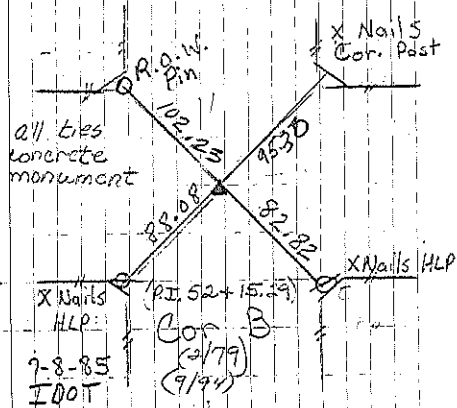 X Nails
Cor. Post
R.O.W.
Pin
102.23
all ties
concrete
monument
88.08
82.82
X Nails HLP
X Nails
HLP
(P.I. 52+15.29)
Cor B
(2/79)
(9/94)
7-8-85
IDOT